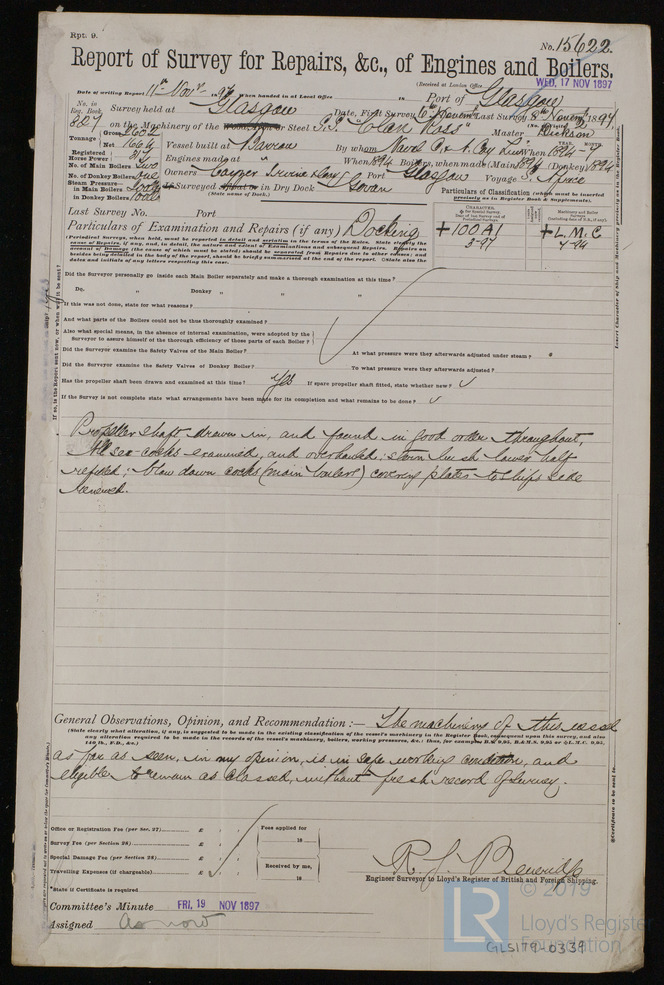 Rpt. 9.
No. 15622.
Report of Survey for Repairs, &c., of Engines and Boilers.
(Received at London Office
WED. 17 NOV 1897
Date of writing Report 11th Novr 1897 When handed in at Local Office Port of Glasgow
No. in Reg. Book 887 Survey held at Glasgow Date, First Survey 6th Novemr Last Survey 8th Novemr 1897
on the Machinery of the Wood, Iron or Steel S.S. "Clan Ross" Master Dickson
Tonnage Gross 2604
Net 1664
Vessel built at Barrow By whom Naval C. & A. Coy Ltd When 1894-4
Registered Horse Power 317
Engines made at " When 1894 Boilers, when made (Main) 1894 (Donkey) 1894
No. of Main Boilers Two
No. of Donkey Boilers One
Owners Cayzer Irvine & Coy Port Glasgow Voyage S. Africa
Steam Pressure—
in Main Boilers
in Donkey Boilers
If Surveyed Afloat or in Dry Dock Govan
(State name of Dock.)
Particulars of Classification (which must be inserted
precisely as in Register Book & Supplements).
Last Survey No. Port
Particulars of Examination and Repairs (if any) Docking
+ 100A1
3-97
+ L.M.C
4-94
(Periodical Surveys, when held, must be reported in detail and seriatim in the terms of the Rules. State clearly the
cause of Repairs, if any, and, in detail, the nature and extent of Examinations and subsequent Repairs. Repairs on
account of Damage (the cause of which must be stated) should be separated from Repairs due to other causes; and
besides being detailed in the body of the report, should be briefly summarized at the end of the report. State also the
dates and initials of any letters respecting this case.
Did the Surveyor personally go inside each Main Boiler separately and make a thorough examination at this time?
Do. " Donkey " " "
If this was not done, state for what reasons?
And what parts of the Boilers could not be thus thoroughly examined?
Also what special means, in the absence of internal examination, were adopted by the
Surveyor to assure himself of the thorough efficiency of those parts of each Boiler?
Did the Surveyor examine the Safety Valves of the Main Boiler? At what pressure were they afterwards adjusted under steam?
Did the Surveyor examine the Safety Valves of Donkey Boiler? To what pressure were they afterwards adjusted?
Has the propeller shaft been drawn and examined at this time? Yes If spare propeller shaft fitted, state whether new? ✓
If the Survey is not complete state what arrangements have been made for its completion and what remains to be done? ✓
Propeller shaft drawn in, and found in good order throughout,
All sea-cocks examined, and overhauled; stern bush lower half
refitted; blow down cocks (main boilers) covering plates to ships side
renewed.
General Observations, Opinion, and Recommendation:— The machinery of this vessel
(State clearly what alteration, if any, is suggested to be made in the existing classification of the vessel's machinery in the Register Book, consequent upon this survey, and also
any alteration required to be made in the records of the vessel's machinery, boilers, working pressures, &c.: thus, for example, B.S. 9,95, B.&M.S. 9,95 or L.M.C. 9,95,
140 lb., F.D., &c.)
as far as seen, in my opinion, is in safe working condition, and
eligible to remain as classed, without fresh record of Survey.
Office or Registration Fee (per Sec. 27) £ : : Fees applied for
Survey Fee (per Section 28) £ : : 18
Special Damage Fee (per Section 28) £ : : Received by me,
Travelling Expenses (if chargeable) £ : : 18
*State if Certificate is required
Engineer Surveyor to Lloyd's Register of British and Foreign Shipping.
Committee's Minute FRI. 19 NOV 1897
Assigned As now
LR © 2019
Lloyd's Register
Foundation
GLS179-0339